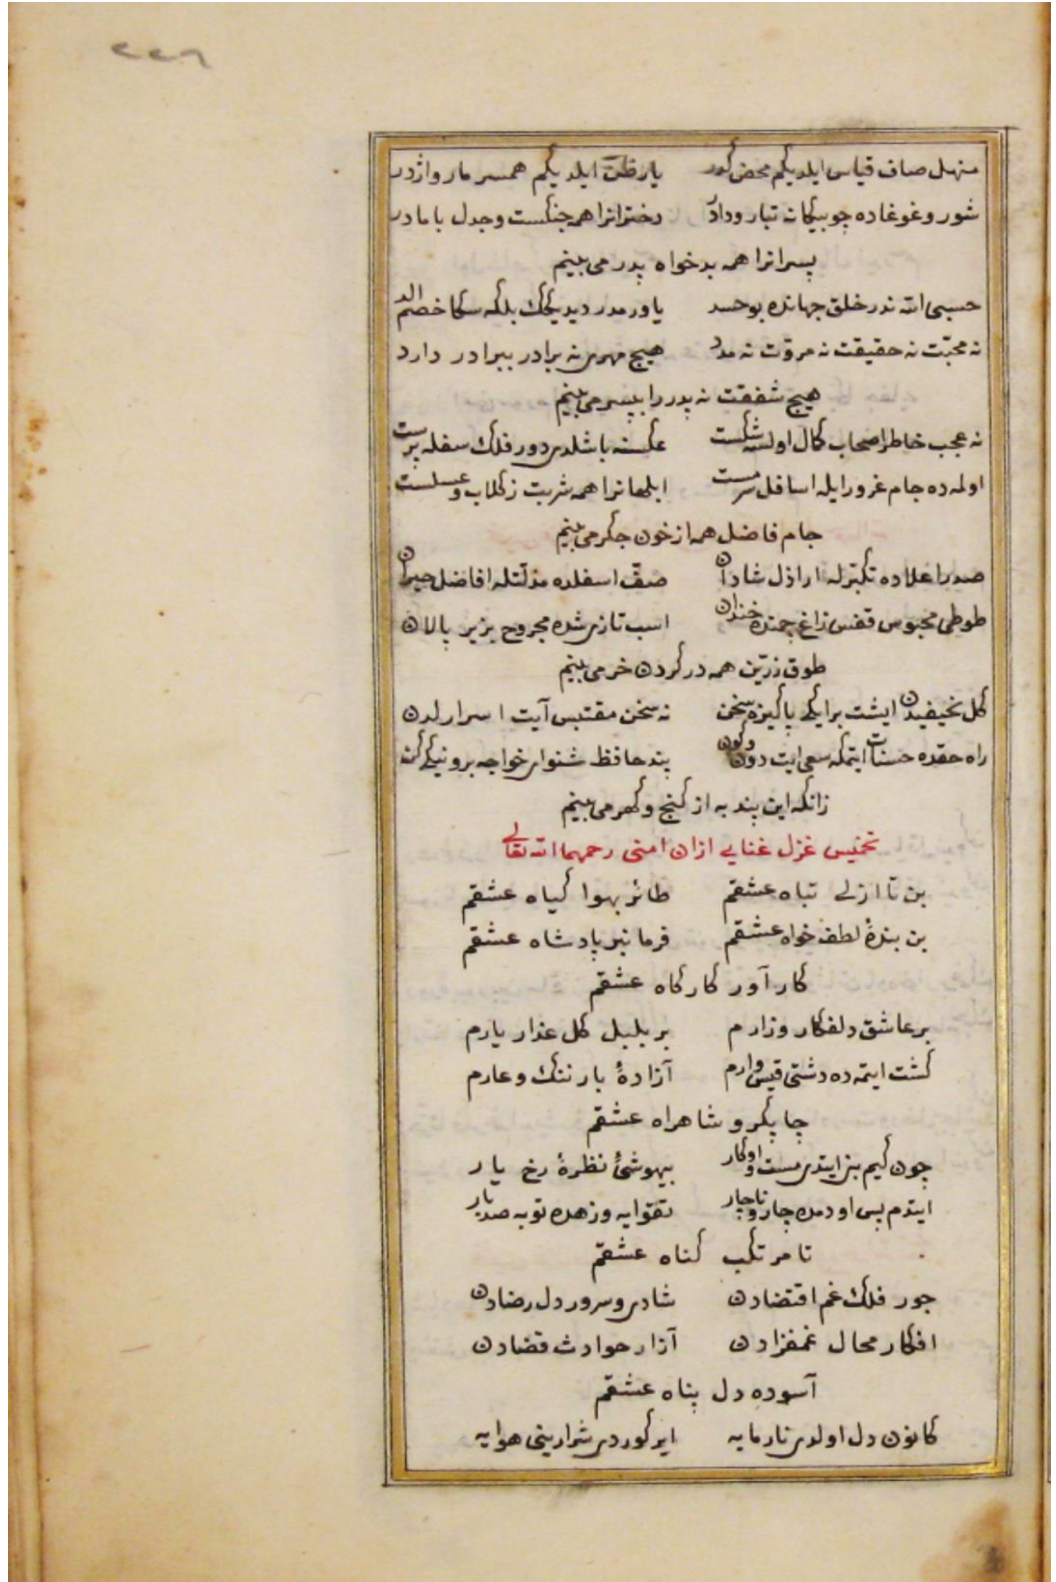 ٢٢٦
منهل صاف قیاس ایلدیکم محض کدر یار ظن ایلدیکم همسر مار واژدر
شور وغوغاده چو بیکانه تبار ودادر دخترانرا همه جنکست وجدل با مادر
پسرانرا همه بدخواه پدر می بینم
حسبی الله ندر خلق جهانده بو حسد یاور مدر دیدیکک بلکه سکا خصم الد
نه محبت نه حقیقت نه مروت نه مدد هیچ مهری نه برادر ببرادر دارد
هیچ شفقت نه پدر را بپسر می بینم
نه عجب خاطر اصحاب کمال اولسه شکست عکسنه باشلدی دور فلک سفله پرست
اولمه ده جام غرور ایله اسافل سرمست ابلهانرا همه شربت ز کلاب وعسلست
جام فاضل همه از خون جکر می بینم
صدر اعلاده تکبرله اراذل شادان صف اسفلده مذلتله افاضل حیران
طوطی محبوس قفس زاغ چمنده خندان اسب تازی شده مجروح بزیر پالان
طوق زرین همه در کردن خر می بینم
کل نحیفیدن ایشت بر ایکی پاکیزه سخن نه سخن مقتبس آیت اسرار لدن
راه حقده حسنات ایتمکه سعی ایت دون وکون پند حافظ شنو ای خواجه برو نیکی کن
زانکه این پند به از کنج وکهر می بینم
تخمیس غزل غنایی ازان امنی رحمهما الله تعالی
بن تا ازلی تباه عشقم طائر بهوا کیاه عشقم
بن بندۀ لطف خواه عشقم فرمانبر پادشاه عشقم
کار آور کارکاه عشقم
بر عاشق دلفکار وزارم بر بلبل کل عذار یارم
کشت ایتمه ده دشتی قیس وارم آزادۀ بار ننک وعارم
چابکرو شاهراه عشقم
چون کیم بنی ایتدی مست بیهوشئ نظرۀ رخ یار
ایتدم پس اودمده چار وناچار تقوایه وزهده توبه صد بار
تا مرتکب کناه عشقم
جور فلک غم اقتضادن شادی وسرور دل رضادن
افکار محال غمفزادن آزار حوادث قضادن
آسوده دل پناه عشقم
کانون دل اولدی نار مایه ایر کوردی شرارینی هوایه